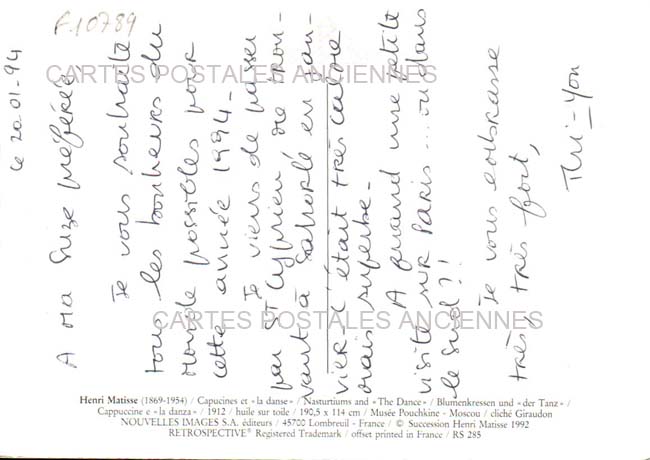 F.10789
le 20-01-94
A ma Suze préférée,
Je vous souhaite
tous les bonheurs du
monde possibles pour
cette année 1994-
Je viens de passer
par St Cyprien me trou-
vant à Sahorle en jan-
vier c'était très calme
mais superbe-
A quand une petite
visite sur Paris... ou dans
le sud?!
Je vous embrasse
très, très fort,
Thi-Yon
CARTES POSTALES ANCIENNES
CARTES POSTALES ANCIENNES
Henri Matisse (1869-1954) / Capucines et «la danse» / Nasturtiums and «The Dance» / Blumenkressen und «der Tanz» /
Cappuccine e «la danza» / 1912 / huile sur toile / 190,5 x 114 cm / Musée Pouchkine - Moscou / cliché Giraudon
NOUVELLES IMAGES S.A. éditeurs / 45700 Lombreuil - France / © Succession Henri Matisse 1992
RETROSPECTIVE® Registered Trademark / offset printed in France / RS 285